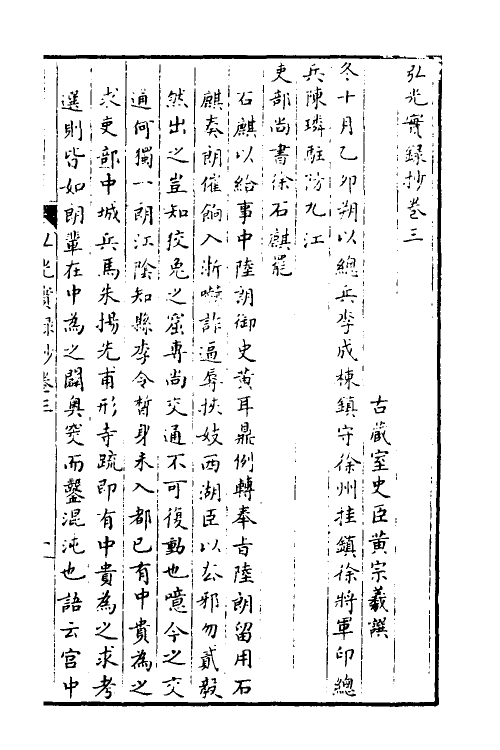 弘光實錄抄卷三
古藏室史臣黃宗羲撰
冬十月乙卯朔以總兵李成棟鎮守徐州挂鎮徐將軍印總
兵陳璘駐防九江
吏部尚書徐石麒罷
石麒以給事中陸朗御史黃耳鼎例轉奉旨陸朗留用石
麒奏朗催餉入浙嚇詐逼辱挾妓西湖臣以去邪勿貳毅
然出之豈知狡兔之窟專尚交通不可復動也噫今之交
通何獨一朗江陰知縣李令晳身未入都已有中貴為之
求吏部中城兵馬朱揚光甫形寺疏即有中貴為之求考
選則皆如朗輩在中為之闢奥窔而鑿混沌也語云官中
弘光實錄抄卷三
一